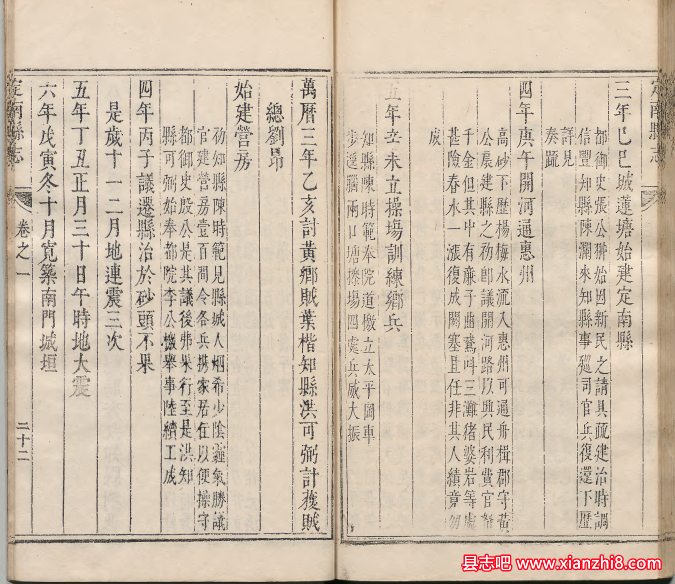 定南縣志
三年己巳城蓮塘始建定南縣
都御史張公翀始因新民之請具疏建治時調
信豐知縣陳瀾來知縣事廵司官兵復還下歷
詳見
奏䟽
四年庚午開河通惠州
高砂下歷楊梅水流入惠州可通舟楫郡守黃
公扆建縣之初卽議開河路以興民利費官
千金但其中有蔴子曲灣叫三灘猪婆岩等處
甚險春水一漲復成閼塞且任非其人績竟勿
底
五年辛未立操塲訓練鄉兵
知縣陳時範奉院道檄立太平岡車
步逕腦兩口塘操塲四處兵威大振
萬曆三年乙亥討黃鄉賊葉楷知縣洪可弼計獲賊
總劉昂
始建營房
初知縣陳時範見縣城人烟希少陰霾氣勝議
官建營房壹百間令各兵携家居住以便操守
都御史殷公是其議後弗果行至是洪知
縣可弼始奉都院李公檄舉事陸續工成
四年丙子議遷縣治於砂頭不果
是歲十一二月地連震三次
五年丁丑正月三十日午時地大震
六年戊寅冬十月寛築南門城垣
定南縣志
卷之一
二十二
县志吧 www.xianzhi8.com